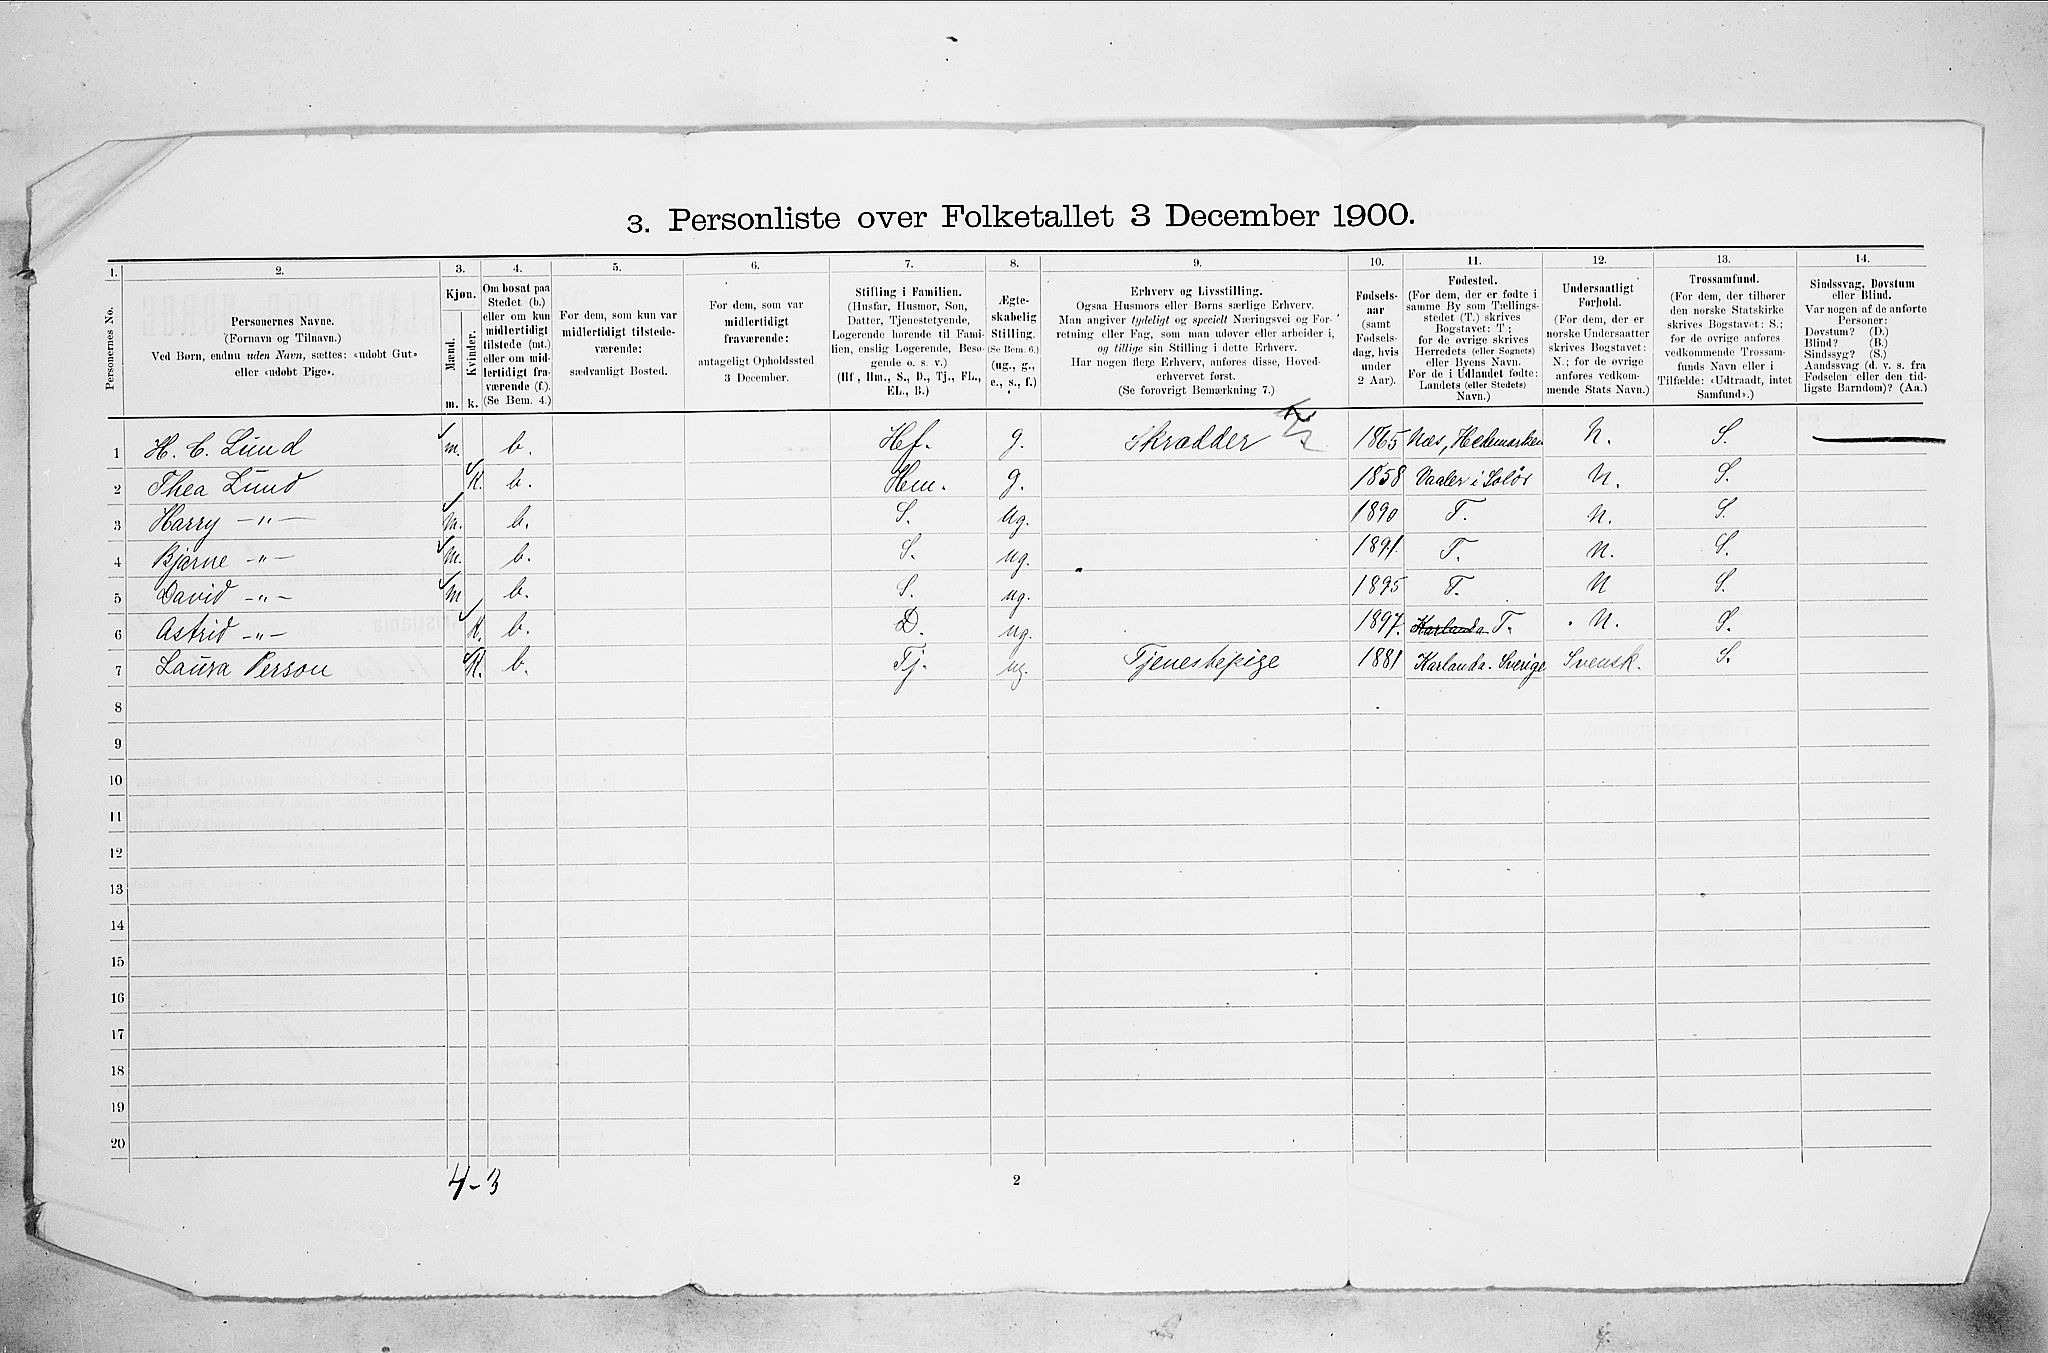 3. Personliste over Folketallet 3 December 1900.
1. 2. 3. 4. 5. 6. 7. 8. 9. 10. 11. 12. 13. 14.
Personernes No.
Personernes Navne.
(Fornavn og Tilnavn.)
Ved Børn, endnu uden Navn, sættes: «udøbt Gut»
eller «udøbt Pige».
Kjøn.
Mænd.
Kvinder.
m. k.
Om bosat paa
Stedet (b.)
eller om kun
midlertidigt
tilstede (mt.)
eller om mid-
lertidigt fra-
værende (f.).
(Se Bem. 4.)
For dem, som kun var
midlertidigt tilstede-
værende:
sædvanligt Bosted.
For dem, som var
midlertidigt
fraværende:
antageligt Opholdssted
3 December.
Stilling i Familien.
(Husfar, Husmor, Søn,
Datter, Tjenestetyende,
Logerende hørende til Fami-
lien, enslig Logerende, Besø-
gende o. s. v.)
(Hf., Hm., S., D., Tj., FL.,
EL., B.)
Ægte-
skabelig
Stilling.
(Se Bem. 6.)
(ug., g.,
e., s., f.)
Erhverv og Livsstilling.
Ogsaa Husmors eller Børns særlige Erhverv.
Man angiver tydeligt og specielt Næringsvei og For-
retning eller Fag, som man udøver eller arbeider i,
og tillige sin Stilling i dette Erhverv.
Har nogen flere Erhverv, anføres disse, Hoved-
erhvervet først.
(Se forøvrigt Bemærkning 7.)
Fødsels-
aar
(samt
Fødsels-
dag, hvis
under
2 Aar).
Fødested.
(For dem, der er fødte i
samme By som Tællings-
stedet (T.) skrives
Bogstavet: T;
for de øvrige skrives
Herredets (eller Sognets)
eller Byens Navn.
For de i Udlandet fødte:
Landets (eller Stedets)
Navn.)
Undersaatligt
Forhold.
(For dem, der er
norske Undersaatter
skrives Bogstavet:
N.; for de øvrige
anføres vedkom-
mende Stats Navn.)
Trossamfund.
(For dem, der tilhører
den norske Statskirke
skrives Bogstavet: S.;
for de øvrige anføres
vedkommende Trossam-
funds Navn eller i
Tilfælde: «Udtraadt, intet
Samfund».)
Sindssvag, Døvstum
eller Blind.
Var nogen af de anførte
Personer:
Døvstum? (D.)
Blind? (B.)
Sindssyg? (S.)
Aandssvag (d. v. s. fra
Fødselen eller den tid-
ligste Barndom)? (Aa.)
1 H. C. Lund m. b. Hf. g. Skrædder 1865 Næs, Hedemarken N. S.
2 Thea Lund K. b. Hm. g. 1858 Vaaler i Solør N. S.
3 Harry —"— m. b. S. ug. 1890 T. N. S.
4 Bjarne —"— m. b. S. ug. 1891. T. N. S.
5 David —"— m b. S. ug. 1895 T. N S.
6 Astrid —"— K. b. D. ug. 1897. Karlanda T. N. S.
7 Laura Person K. b. Tj. ug. Tjenestepige 1881 Karlanda. Sverige Svensk. S.
8
9
10
11
12
13
14
15
16
17
18
19
20
4-3
2